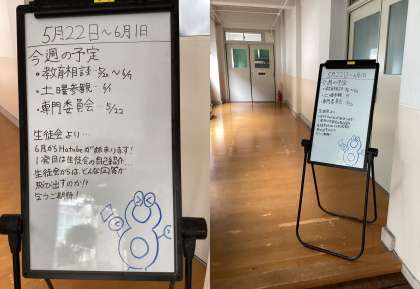 5月22日～6月1日
今週の予定
・教育相談…5/22～6/1
・土曜参観…6/1
・専門委員会…5/22
生徒会より…
6月からHutubeが始まります!
1発目は生徒会の自己紹介…
生徒会からは どんな
が
飛び出すのか!?
乞うご期待!